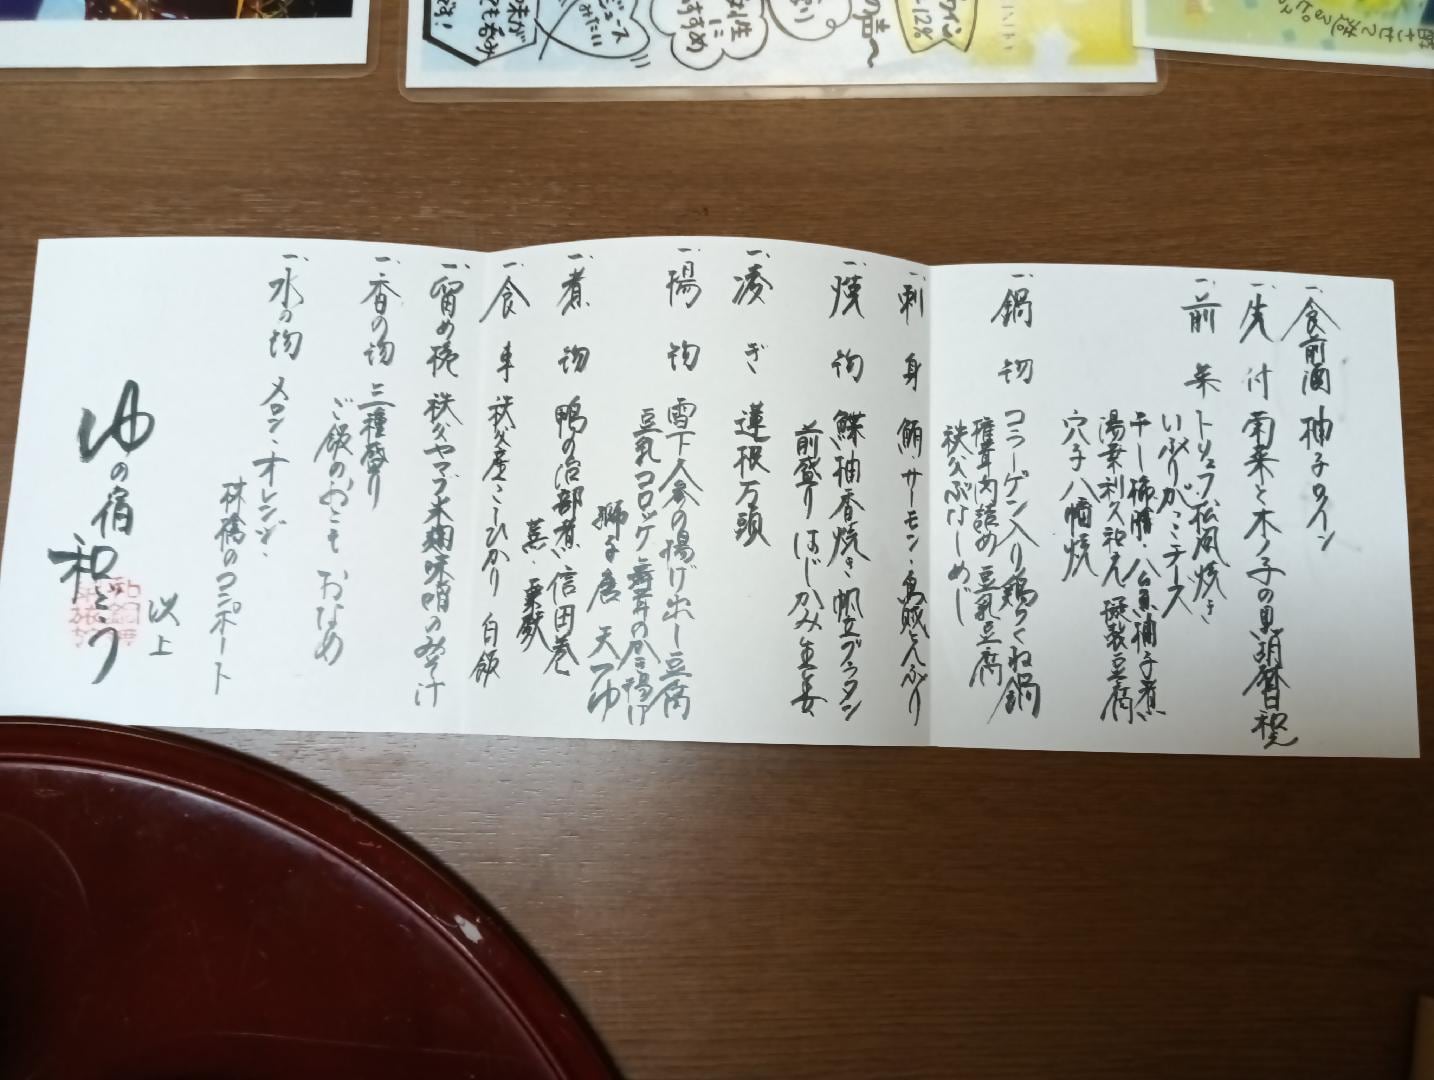 一、食前酒 柚子ワイン
一、先付 南菜と木ノ子の黒胡麻和え
一、前菜 トリュフ松風焼き
いぶりがっこチーズ
干し柿膳・公魚柚子煮
湯葉利久和え 擬製豆腐
穴子八幡焼
一、鍋物 コラーゲン入り鶏つくね鍋
椎茸肉詰め 豆乳豆腐
秩父ぶなしめじ
一、刺身 鮪・サーモン・
一、焼物 鰈柚香焼き 帆立グラタン
前盛り はじかみ生姜
一、凌ぎ 蓮根万頭
一、揚物 雪下人参の揚げ出し豆腐
豆乳コロッケ 舞茸のかき揚げ
獅子唐 天つゆ
一、煮物 鴨の治部煮 信田巻
蕪・粟麩
一、食事 秩父産こしひかり 白飯
一、留め椀 秩父ヤマブ米麹味噌のみそ汁
一、香の物 三種盛り
ご飯のおとも おなめ
一、水の物 メロン・オレンジ・
林檎のコンポート
以上
ゆの宿 和どう